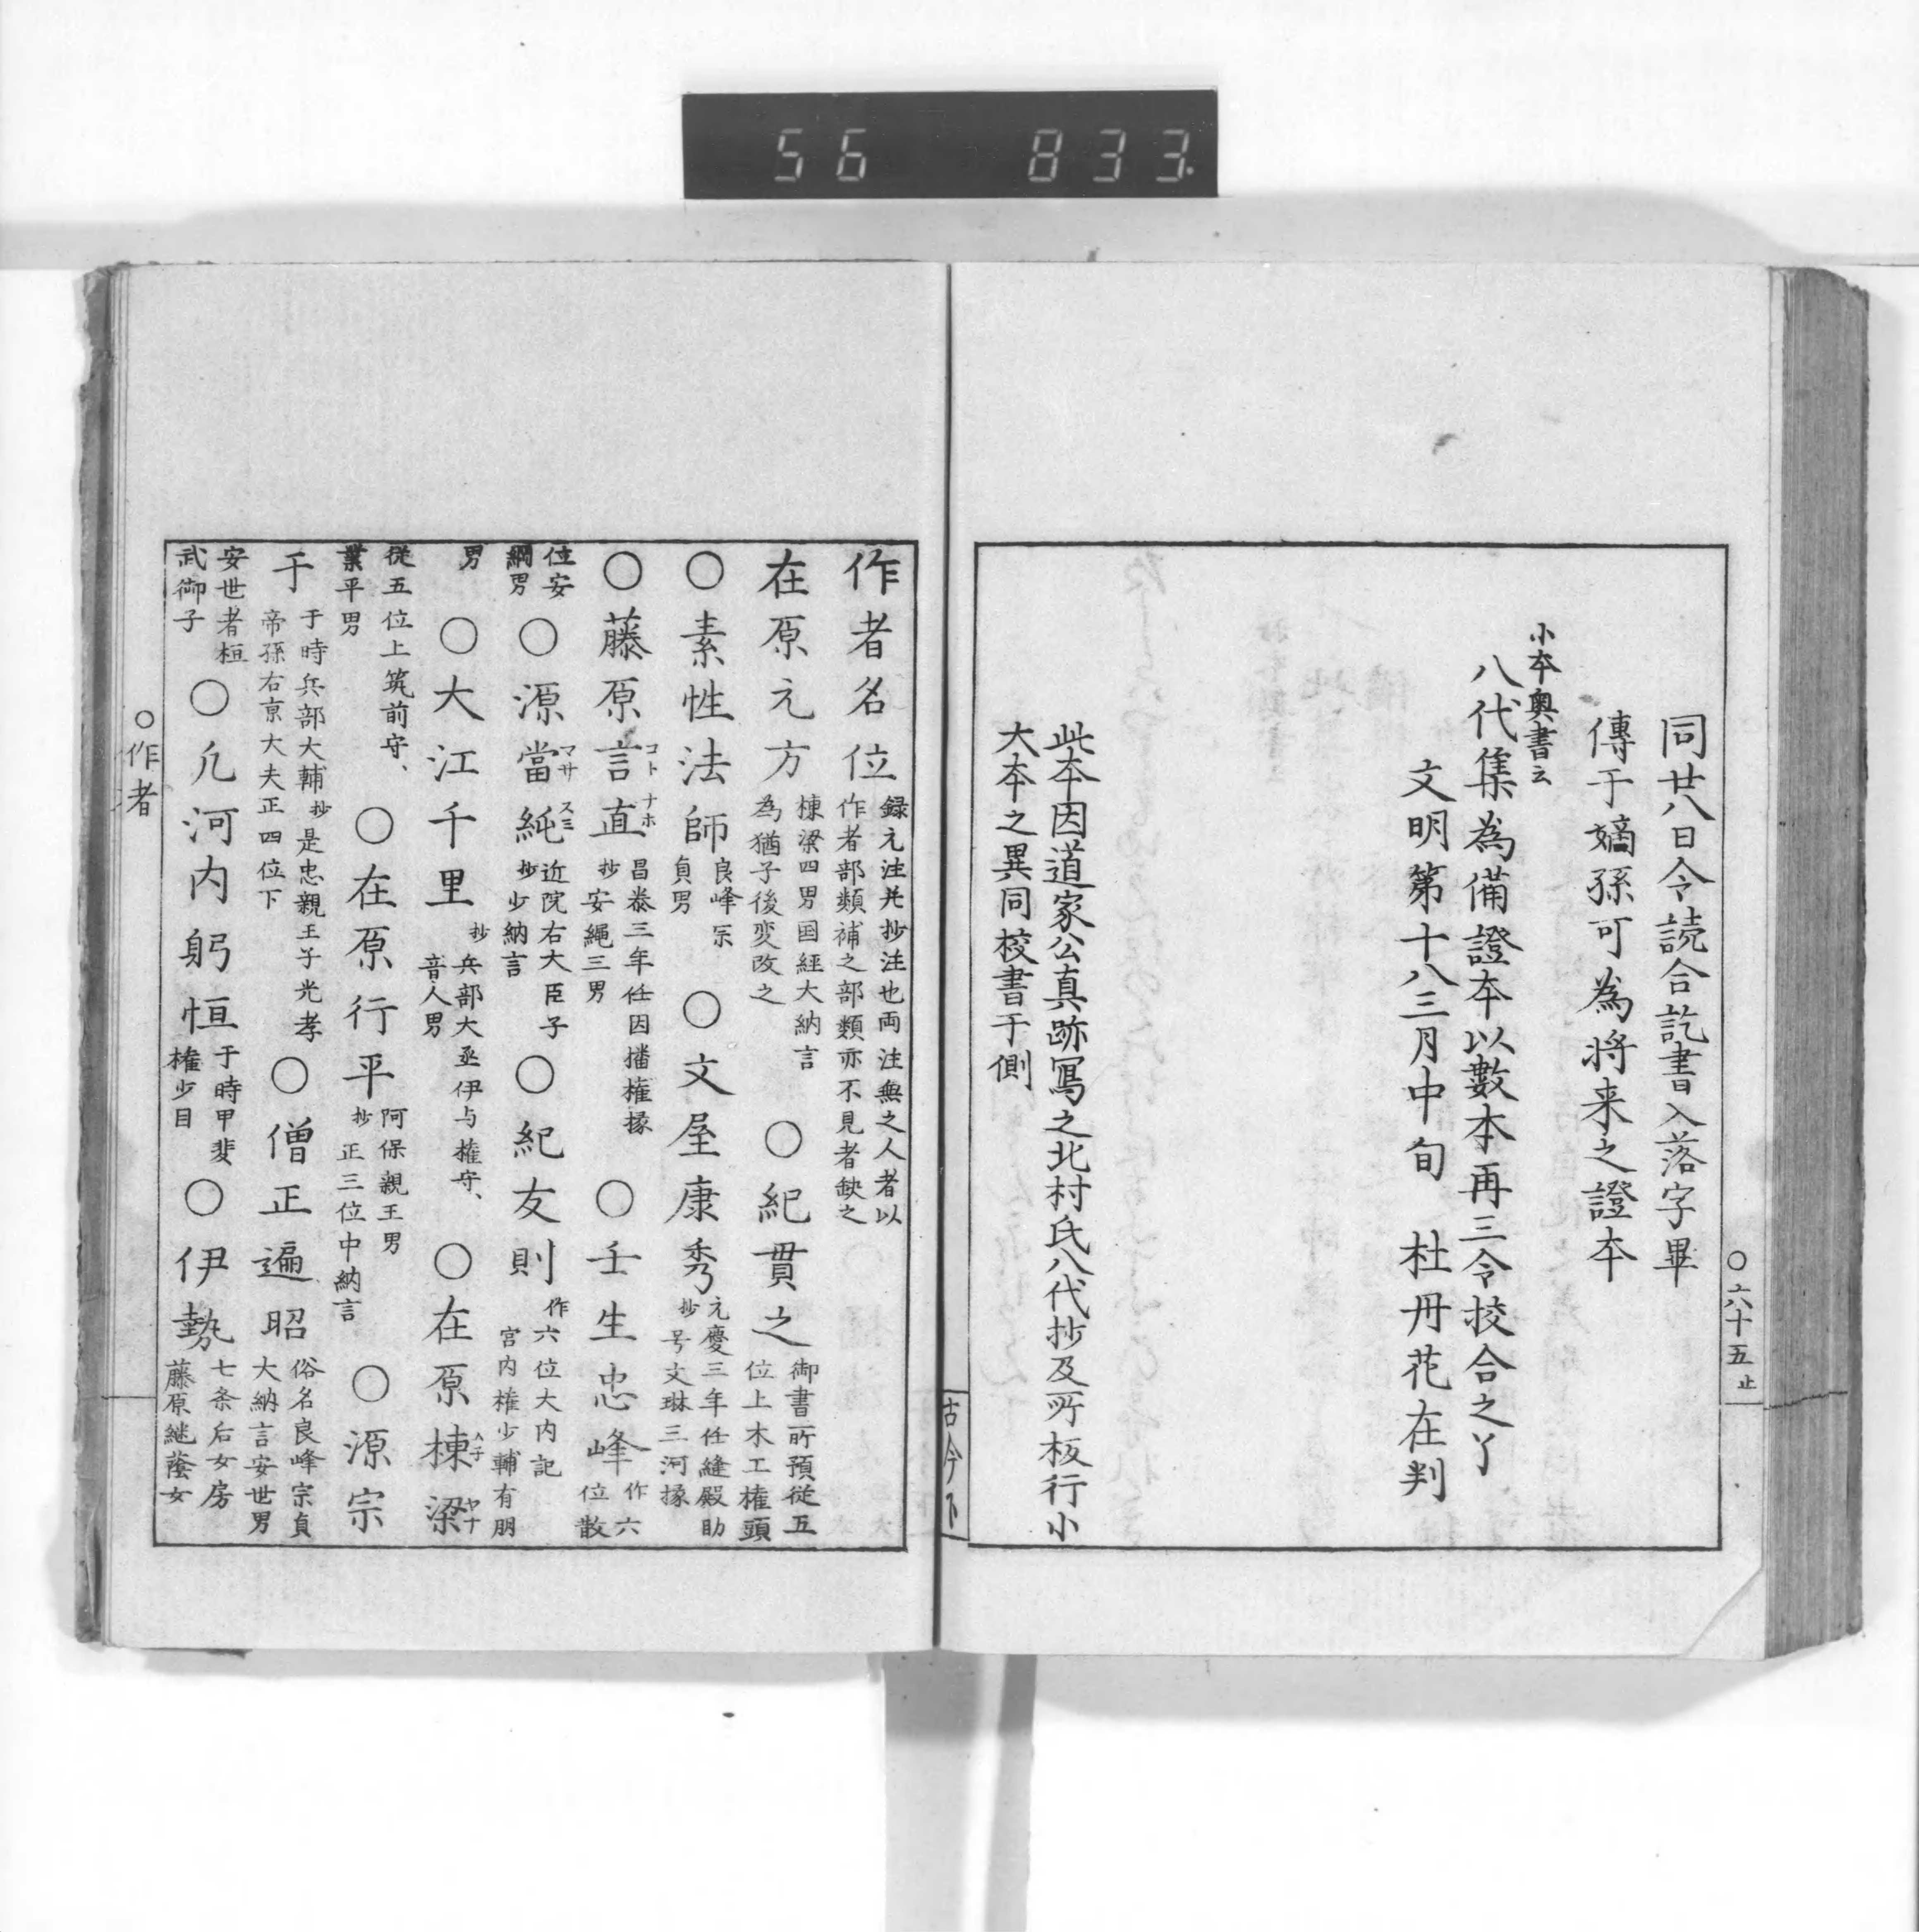 56 833.
同廿八日令読合訖書入落字畢
傳于嫡孫可為将来之證本
小本奥書云
八代集為備證本以數本再三令校合之了
文明第十八三月中旬 杜丹花在判
此本因道家公真跡冩之北村氏八代抄及所板行小
大本之異同校書于側
○六十五止
古今下
作者名位
録元注并抄注也両注無之人者以
作者部類補之部類亦不見者缺之
在原元方
棟梁四男国經大納言
為猶子後変改之
○紀貫之
御書所預従五
位上木工権頭
○素性法師
良峰宗
貞男
○文屋康秀
元慶三年任縫殿助
抄号文琳三河掾
○藤原言直
コト ナホ
昌泰三年任因播権掾
抄安縄三男
○壬生忠峰
作六
位散
位安
綱男
○源當純
マサ スミ
近院右大臣子
抄少納言
○紀友則
作六位大内記
宮内権少輔有朋
男
○大江千里
抄兵部大丞伊与権守、
音人男
○在原棟梁
ムネ ヤナ
従五位上筑前守、
業平男
○在原行平
阿保親王男
抄正三位中納言
○源宗
于
于時兵部大輔抄是忠親王子光孝
帝孫右京大夫正四位下
○僧正遍昭
俗名良峰宗貞
大納言安世男
安世者桓
武御子
○凡河内躬恒
于時甲斐
権少目
○伊勢
七条后女房
藤原継蔭女
○作者